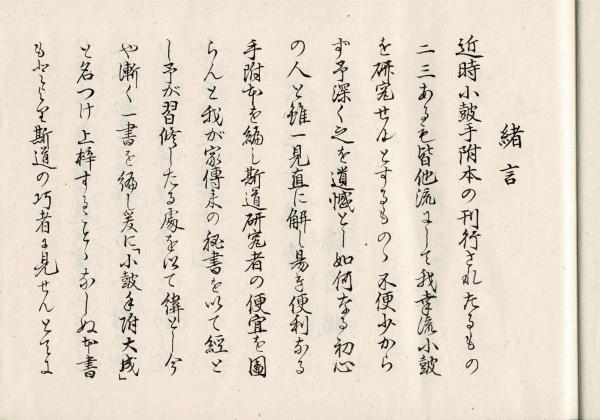 緒言
近時小鼓手附本の刊行されたるもの
二三あるも皆他流にして我幸流小鼓
を研究せんとするものゝ不便少から
ず予深く之を遺憾とし如何なる初心
の人と雖一見直に解し易き便利なる
手附本を編し斯道研究者の便宜を圖
らんと我が家傳来の秘書を以て經と
し予が習修したる處を以て緯とし今
や漸く一書を編し爰に「小鼓手附大成」
と名つけ上梓することゝなしぬ本書
もとより斯道の巧者に見せんとてに